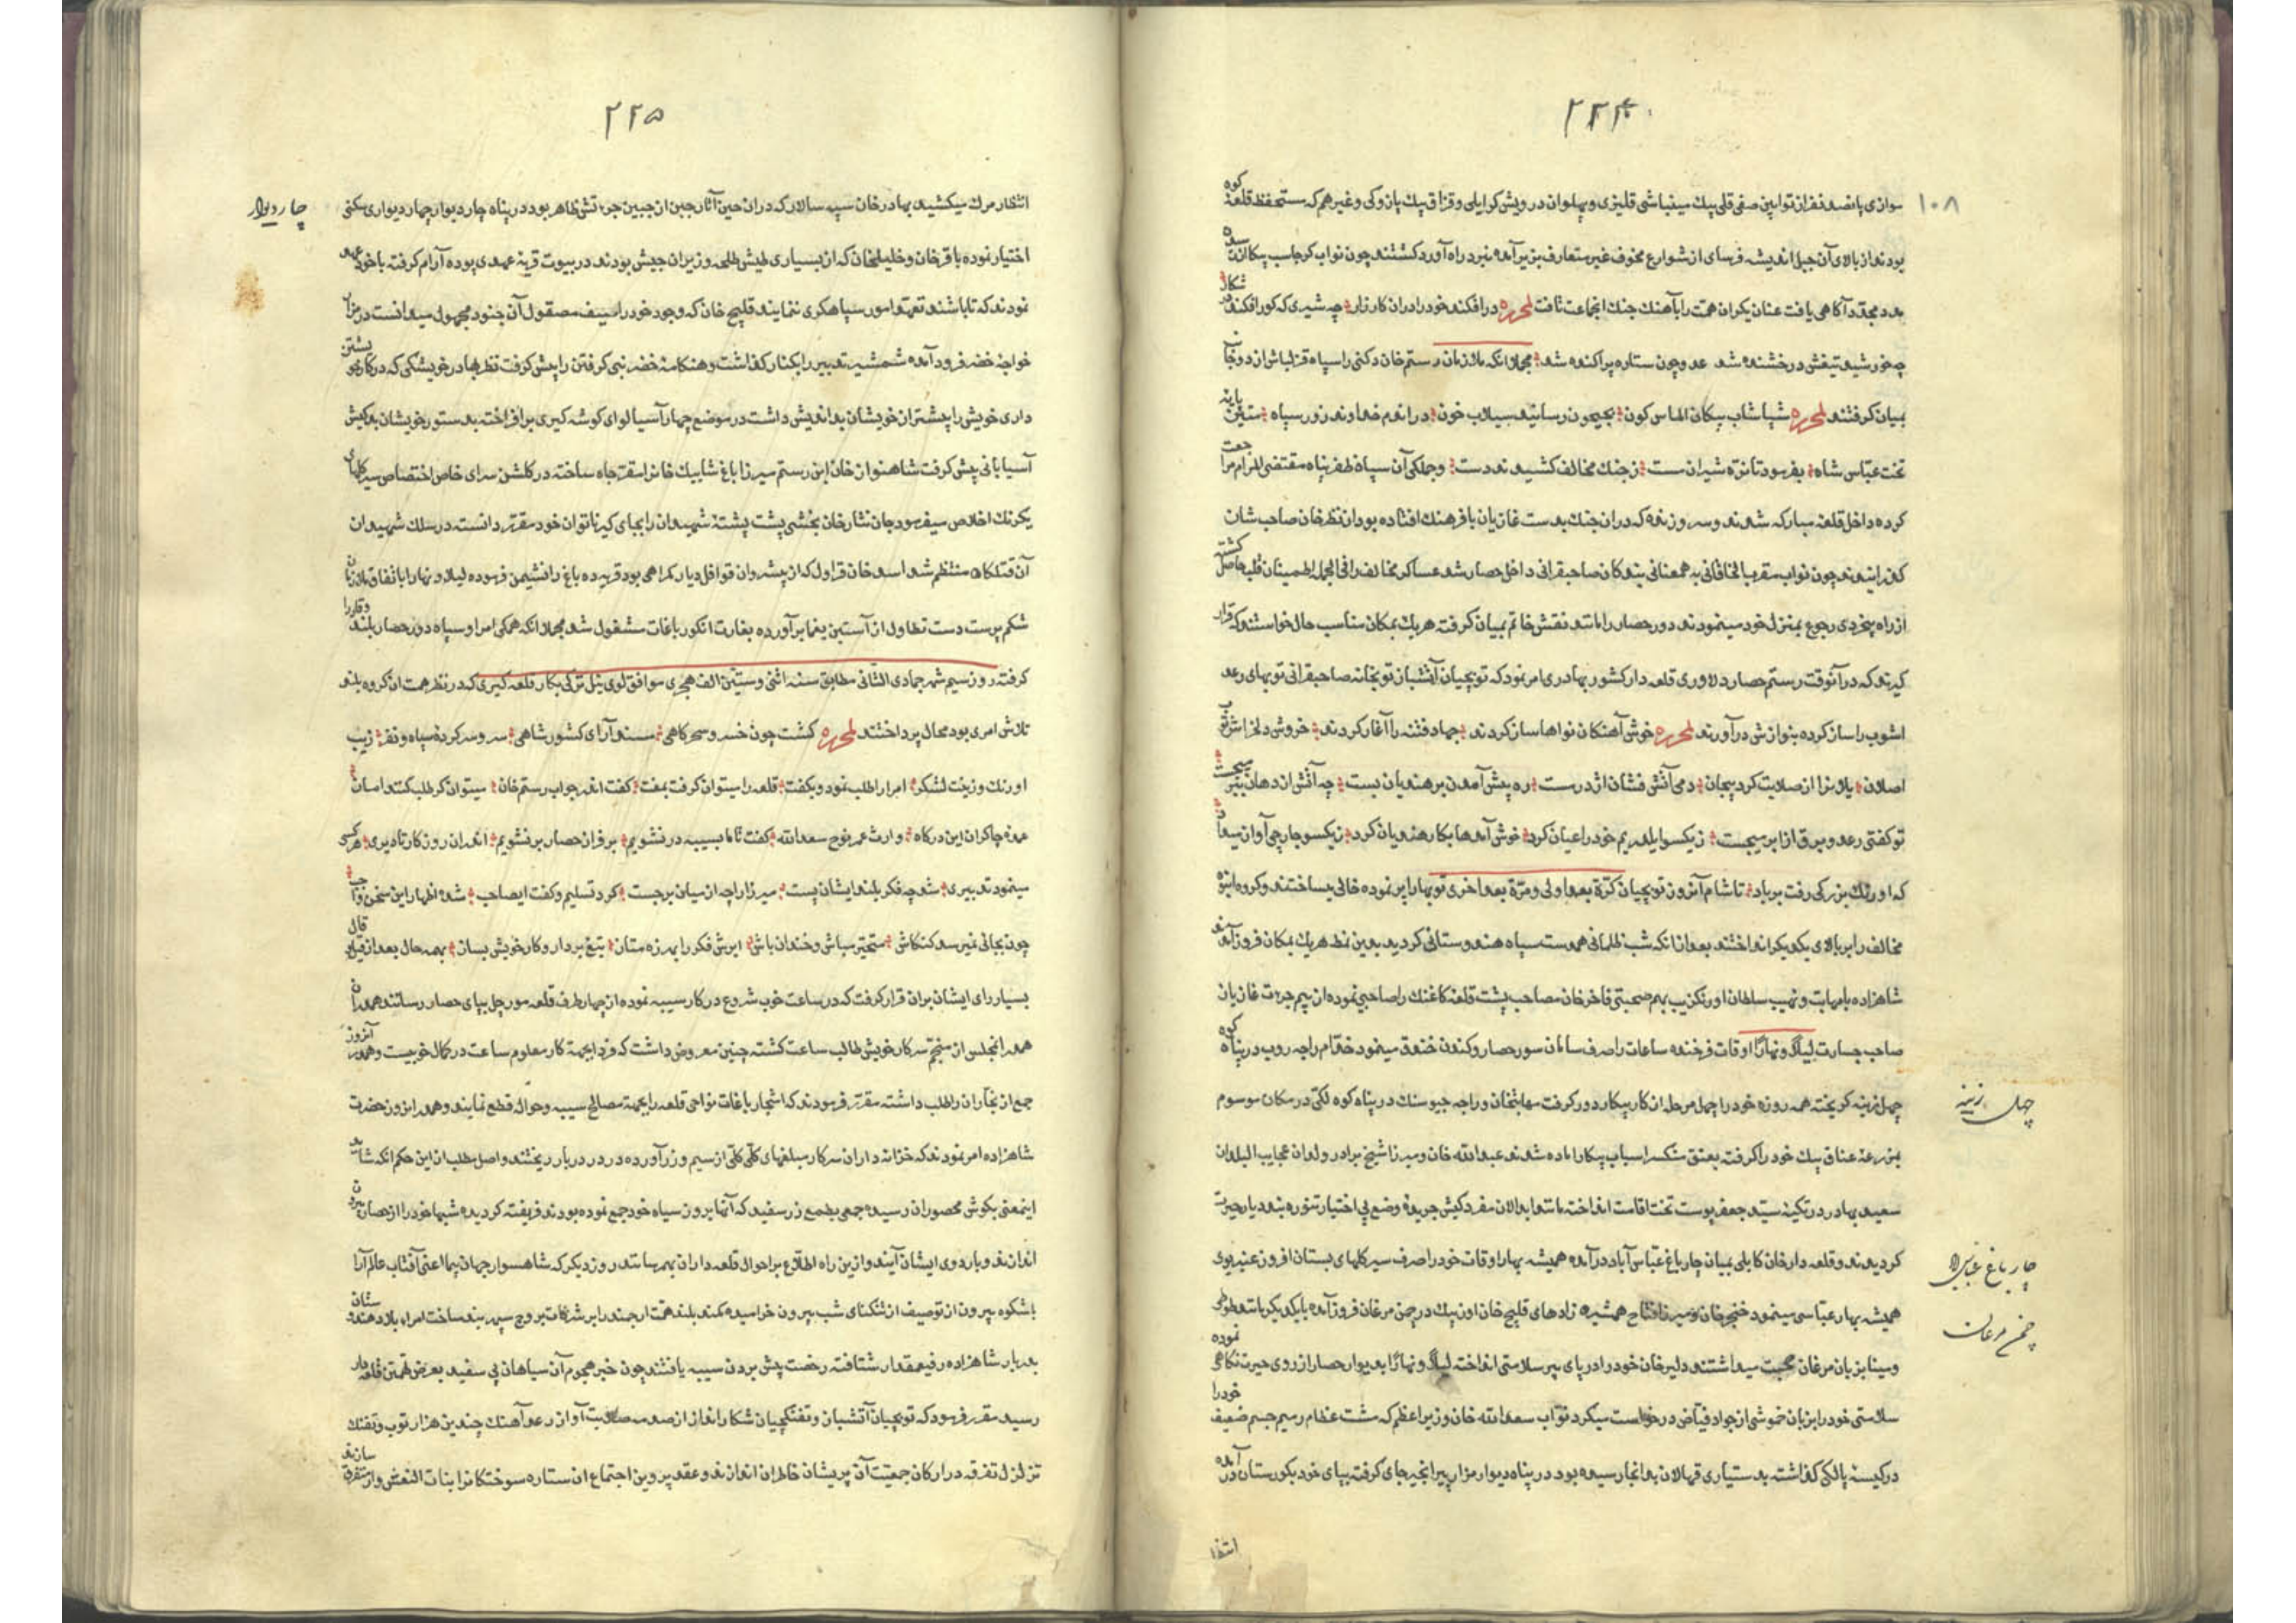 ۲۲۴
۱۰۸
موازی پانصد نفر از توابین صفی قلی بیك مینباشی قلیزی و پهلوان درویش کرایلی و قزاق بیك بازوکی و غیرهم که مستحفظ قلعه کوه
بودند از بالای آن جبل اندیشه فرسای از شوارع مخوف غیر متعارف بزیر آمده نبرد راه آورد کشتند چون نواب کرجاسب پیکان
مجدد آکاهی یافت عنان یکران همت را بآهنك جنك انجماعت تافت لمحرره درافکند خود را دران کارزار چه شیری که کور افکند
چه خورشید تیغش درخشنده شد عدو چون ستاره پراکنده شد مجملا انکه ملازمان رستم خان دکنی را سپاه قزلباش از دو جا
بمیان کرفتند لمحرره شپاشاپ پیکان الماس کون بجیحون رسانید سیلاب خون دراندم خداوند زور سپاه
تخت عباس شاه بفرمود تا نره شیران مست زجنك مخالف کشیدند دست و جملکی آن سپاه ظفر پناه مقتضی المرام
کرده داخل قلعه مبارکه شدند و سه روز نعه که دران جنك بدست غازیان با فرهنك افتاده بود از نظر خان صاحب شان
کذرانیدند چون نواب مقرب الخاقانی به همعنانی بندکان صاحبقرانی داخل حصار شد عساکر مخالف را فی الجمله اطمینان قلب حاصل کشته
از راه بیخردی رجوع بمنزل خود مینمودند دور حصار را مانند نقش خاتم بمیان کرفته هریك بمکان مناسب حال خواستند که قرار
کیرند که در آنوقت رستم حصار دلاوری قلعه دار کشور بهادری امر نمود که توپچیان آتشبان توپخانه صاحبقرانی توپهای رعد
اشوب را ساز کرده بنوازش درآورند لمحرره خوش آهنکان نواها ساز کردند جهاد فتنه را آغاز کردند خروش دلخراش توپ
اصلان یلانرا از صلابت کرد بیجان دمی آتش فشان اژدر ست ره پیش آمدن بر هندیان بست چه آتش از دهان ببر میجست
تو کفتی رعد و برق از ابر میجست زیکسو ایلدریم خود را عیان کرد خوش آمدها بکار هندیان کرد زیکسو جارچی آواز میداد
که اورنك بزرکی رفت بر باد تا شام آنروز توپچیان کرّة بعد اولی و مرّة بعد اخری توپها را پر نموده خالی میساختند و کروه انبوه
مخالف را بر بالای یکدیکر انداختند بعد از انکه شب ظلمانی همدست سپاه هندوستانی کردید بدین نمط هریك بمکان فرود آمدند
شاهزاده بامهابت و نهیب سلطان اورنکزیب بهم صحبتی فاخر خان مصاحب پشت قلعه کاغنك را صاحبی نموده از بیم جرئت غازیان
صاحب جسارت لیلاً و نهاراً اوقات فرخنده ساعات را صرف سامان سور حصار و کندن خندق مینمود خدقام راجه روب در پناه کوه
چهل زینه کریخته همه روزه خود را چهل مرحله از کار پیکار دور کرفت مهابتخان و راجه جیوسنك در پناه کوه لکی در مکان موسوم
بمزرعه عناق بیك خود را کرفته بعتق شکسر اسباب پیکار اماده شدند عبدالله خان و میرزا شیخ برادر ولدان عجایب البلدان
سعید بهادر در تکیه سید جعفر پوست تخت اقامت انداخته مانند ابدالان مفرد کیش جریده وضع بی اختیار تنوره بند دیار حیرت
کردیدند و قلعه دار خان کابلی بمیان چارباغ عباس آباد درآمده همیشه بهار اوقات خود را صرف سیر کلهای بستان افروز عنبر بوی
همیشه بهار عباسی مینمود خنجر خان و میرزا فتاح همشیره زادهای قلیج خان اوزبك در چمن مرغان فرود آمده با یکدیکر مانند طوطی
و مینا بزبان مرغان صحبت میداشتند دلیر خان خود را در پای پیر سلامتی انداخته لیلاً و نهاراً بدیوار حصار از روی حیرت نکاهی نموده
سلامتی خود را بزبان خموشی از جواد فیاض درخواست میکرد نواب سعد الله خان وزیر اعظم که مشت عظام رمیم جسم ضعیف خود را
در کیسه پالکی کذاشته بدستیاری قهالان بدانجا رسیده بود در پناه دیوار مزار پیر انجیر جای کرفته بپای خود بکورستان در آمده
انتظا
چهل زینه
چار باغ عباس اباد
چمن مرغان
۲۲۵
چار دیوار
انتظار مرك میکشید بهادر خان سپه سالار که دران حین آثار جبن از جبین جرءتش ظاهر بود در پناه چار دیوار چهار دیواری مسکنی
اختیار نموده باقر خان و خلیلخان که از بسیاری طیش طلب وزیران جیش بودند در بیوت قریه عهدی بوده آرام کرفته با خود عهد
نمودند که تا باشند تعهد امور سپاهکری ننمایند قلیج خان که وجود خود را سیف مصقول آن جنود مجهول میدانست در مزار
خواجه خضر فرود آمده شمشیر تدبیر را بکنار کذاشت و هنکامه خضر نبی کرفتن را پیش کرفت نظر بهادر خویشکی که در کار
داری خویش را پیشتر از خویشان بد اندیش داشت در موضع چهار آسیا لوای کوشه کیری بر افراخته بدستور خویشان بد کیش
آسیابانی پیش کرفت شاهنواز خان ابن رستم میرزا باغ شاه بیك خانرا مقر جاه ساخته در کلشن سرای خاص اختصاص سیر کلهای
یکرنك اخلاص میفرمود جان نثار خان بخشی پشت پشته شهیدان را بجای کیر ناتوان خود مقرر دانست در سلك شهیدان
آن قتلکاه منتظم شد اسد خان قراول که از پیشروان قوافل دیار کمراهی بود قریه ده باغ را نشیمن فرموده لیلاً و نهارا باتفاق ملازمان
شکم پرست دست تطاول از آستین یغما برآورده بغارت انکور باغات مشغول شد مجملا انکه همکی امرا و سپاه دور حصار بلند وقار را
کرفته روز سیم شهر جمادی الثانی مطابق سنه اثنی و ستین الف هجری موافق لوی ئیل ترکی بکار قلعه کیری که در نظر همت ان کروه بلند
تلاش امری بود محال پرداختند لمحرره کشت چون خسرو سحرکاهی مسند آرای کشور شاهی سر و سرکرده سپاه و نفر زیب
اورنك و زینت لشکر امرا را طلب نمود و بکفت قلعه را میتوان کرفت بمفت کفت اندر جواب رستم خان میتوان کر طلب کند امان
عمده چاکران این درکاه وارث عمر نوح سعد الله کفت تا ما بسیبه در نشویم بر فراز حصار بر نشویم اندران روزکار تا دیری هر کسی
مینمود تدبیری شد چه فکر بلند ایشان پست میرزا راجه از میان برجست کرد تسلیم و کفت ایصاحب شد اظهار این سخن واجب
چون بجائی نمیرسد کنکاش متحیر مباش و خندان باش ابرش فکر را بهرزه متاز تیغ بردار و کار خویش بساز بهمه حال بعد از قیل و قال
بسیار رای ایشان بران قرار کرفت که در ساعت خوب شروع در کار سیبه نموده از چهار طرف قلعه مورچل بپای حصار رسانند همدران
همدرانجلس از منجم سرکار خویش طالب ساعت کشته چنین معروض داشت که فردا بجهة کار معلوم ساعت در کمال خوبیست و همدر آنروز
جمع از نجاران را طلب داشته مقرر فرمودند که اشجار باغات نواحی قلعه را بجهة مصالح سیبه و حواله قطع نمایند و همدر انروز حضرت
شاهزاده امر نمودند که خزانه داران سرکار مبلغهای کلی کلی از سیم و زر آورده در در دربار ریختند و اصل مطلب از این حکم انکه شاید
اینمعنی بکوش محصوران رسیده جمعی بطمع زر سفید که آنها بروز سیاه خود جمع نموده بودند فریفته کردیده شبها خود را از حصار بیرون
اندازند و باردوی ایشان آیند و ازین راه اطلاع بر احوال قلعه داران بهمرسانند روز دیکر که شاهسوار جهان پیما اعنی آفتاب عالم آرا
باشکوه بیرون از توصیف از تنکنای شب بیرون خرامیده کمند بلند همت ارجمند را بر شرفات بروج سپهر بند ساخت امراء بلاد هندوستان
بدربار شاهزاده رفیعمقدار شتافته رخصت پیش بردن سیبه یافتند چون خبر هجوم آن سیاهان پی سفید بعرض تهمتن قلعه دار
رسید مقرر فرمود که توپچیان آتشبان و تفنکچیان شکار انداز از صدمه صلابت آواز رعد آهنك چندین هزار توپ و تفنك
تزلزل تفرقه در ارکان جمعیت آن پریشان خاطران اندازند و عقد پروین اجتماع ان ستاره سوختکانرا بنات النعش وار متفرق سازند